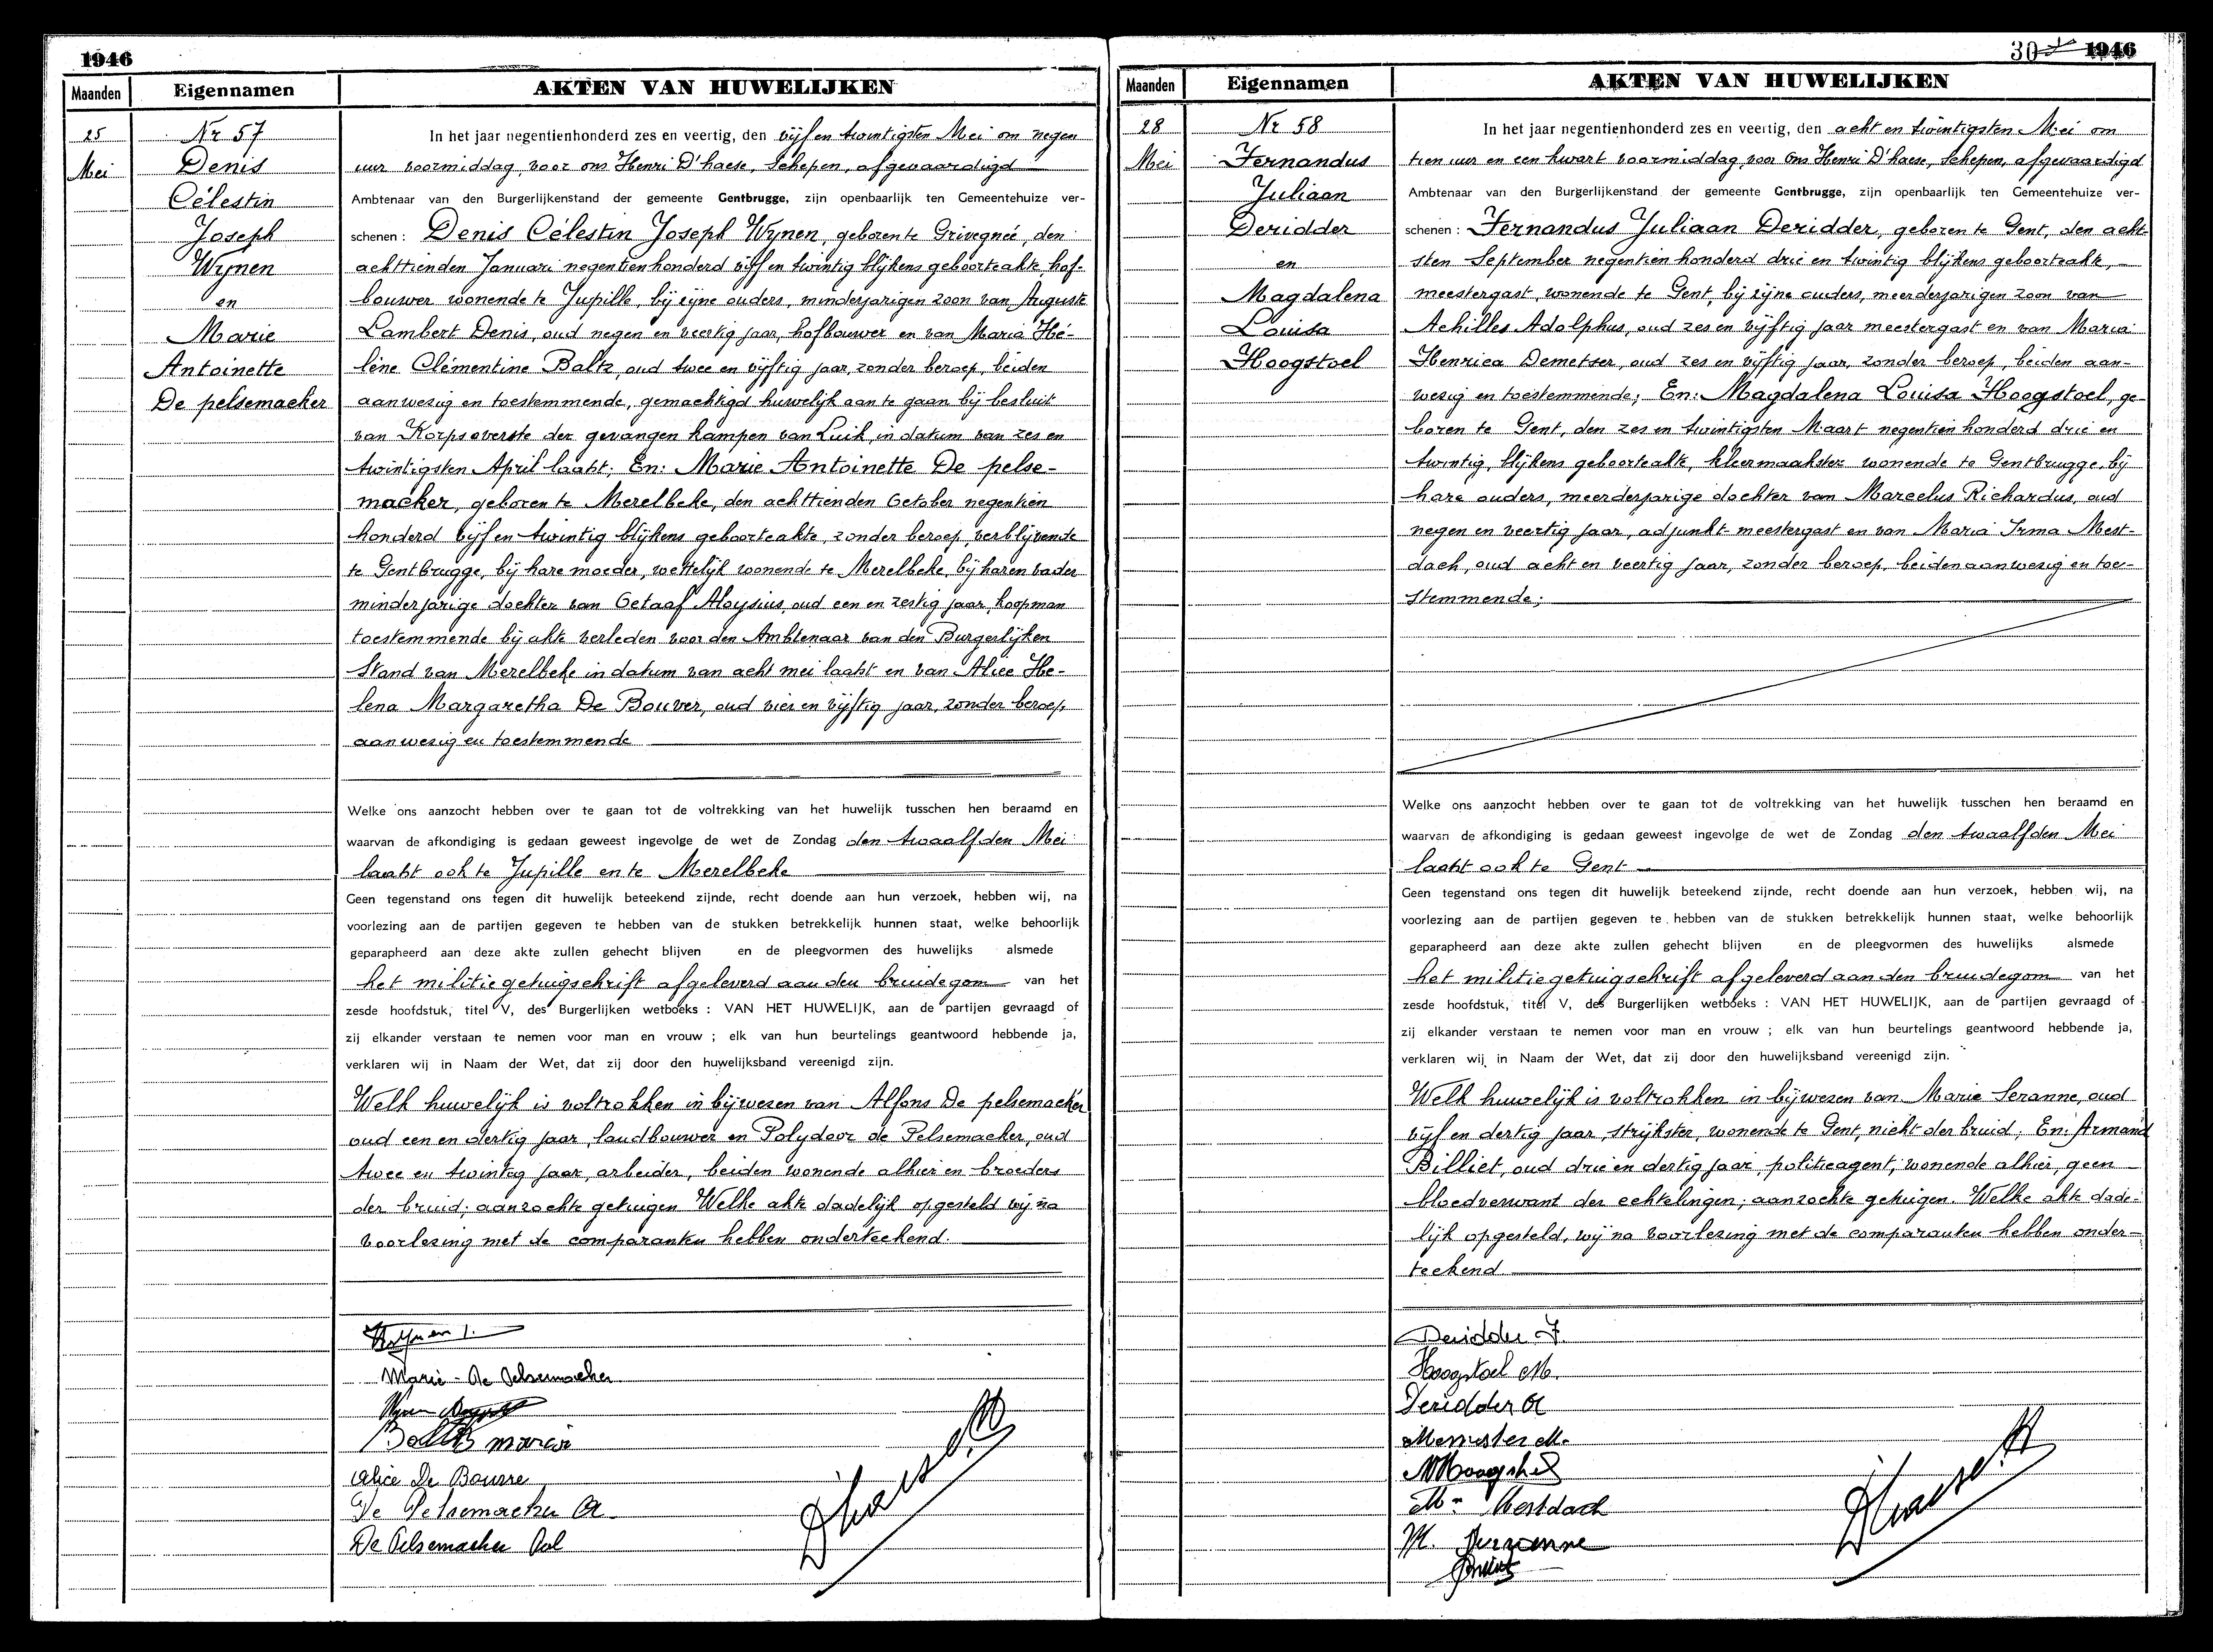 1946
Maanden
Eigennamen
AKTEN VAN HUWELIJKEN
25
Mei
Nr 57
Denis
Célestin
Joseph
Wynen
en
Marie
Antoinette
De pelsemaeker
In het jaar negentienhonderd zes en veertig, den vijf en twintigsten Mei om negen
uur voormiddag, voor ons Henri D'haese, Schepen, afgevaardigd
Ambtenaar van den Burgerlijkenstand der gemeente Gentbrugge, zijn openbaarlijk ten Gemeentehuize ver-
schenen : Denis Célestin Joseph Wynen, geboren te Grivegnée, den
achttienden Januari negentienhonderd vijf en twintig blijkens geboorteakte, hof-
bouwer wonende te Jupille, bij zijne ouders, minderjarigen zoon van Auguste
Lambert Denis, oud negen en veertig jaar, hofbouwer en van Maria Hé-
lène Clémentine Baltz, oud twee en vijftig jaar, zonder beroep, beiden
aanwezig en toestemmende, gemachtigd huwelijk aan te gaan bij besluit
van Korpsoverste der gevangen kampen van Luik, in datum van zes en
twintigsten April laatst; En: Marie Antoinette De pelse-
maeker, geboren te Merelbeke, den achttienden October negentien
honderd vijf en twintig blijkens geboorteakte, zonder beroep, verblijvende
te Gentbrugge, bij hare moeder, wettelijk wonende te Merelbeke, bij haren vader
minderjarige dochter van Octaaf Aloysius, oud een en zestig jaar, koopman
toestemmende bij akte verleden voor den Ambtenaar van den Burgerlijken
Stand van Merelbeke in datum van acht mei laatst en van Alice He-
lena Margaretha De Bouver, oud vier en vijftig jaar, zonder beroep,
aanwezig en toestemmende
Welke ons aanzocht hebben over te gaan tot de voltrekking van het huwelijk tusschen hen beraamd en
waarvan de afkondiging is gedaan geweest ingevolge de wet de Zondag den twaalfden Mei
laatst ook te Jupille en te Merelbeke
Geen tegenstand ons tegen dit huwelijk beteekend zijnde, recht doende aan hun verzoek, hebben wij, na
voorlezing aan de partijen gegeven te hebben van de stukken betrekkelijk hunnen staat, welke behoorlijk
geparapheerd aan deze akte zullen gehecht blijven en de pleegvormen des huwelijks alsmede
het militiegetuigschrift afgeleverd aan den bruidegom van het
zesde hoofdstuk, titel V, des Burgerlijken wetboeks : VAN HET HUWELIJK, aan de partijen gevraagd of
zij elkander verstaan te nemen voor man en vrouw ; elk van hun beurtelings geantwoord hebbende ja,
verklaren wij in Naam der Wet, dat zij door den huwelijksband vereenigd zijn.
Welk huwelijk is voltrokken in bijwezen van Alfons De pelsemaeker
oud een en dertig jaar, landbouwer en Polydoor de Pelsemaeker, oud
twee en twintig jaar, arbeider, beiden wonende alhier en broeders
der bruid; aanzochte getuigen Welke akte dadelijk opgesteld wij na
voorlezing met de comparanten hebben onderteekend.
Wynen
Marie - De Pelsemaeker
Wynen
Baltz maria
Alice De Bouvre
De Pelsemaeker A
De Pelsemaeker Pol
D'haese H
30 1946
Maanden
Eigennamen
AKTEN VAN HUWELIJKEN
28
Mei
Nr 58
Fernandus
Juliaan
Deridder
en
Magdalena
Louisa
Hoogstoel
In het jaar negentienhonderd zes en veertig, den acht en twintigsten Mei om
tien uur en een kwart voormiddag, voor Ons Henri D'haese, Schepen, afgevaardigd
Ambtenaar van den Burgerlijkenstand der gemeente Gentbrugge, zijn openbaarlijk ten Gemeentehuize ver-
schenen : Fernandus Juliaan Deridder, geboren te Gent, den acht-
sten September negentien honderd drie en twintig blijkens geboorteakte,
meestergast, wonende te Gent, bij zijne ouders, meerderjarigen zoon van
Achilles Adolphus, oud zes en vijftig jaar meestergast en van Maria
Henrica Demetser, oud zes en vijftig jaar, zonder beroep, beiden aan-
wezig en toestemmende; En: Magdalena Louisa Hoogstoel, ge-
boren te Gent, den zes en twintigsten Maart negentien honderd drie en
twintig, blijkens geboorteakte, kleermaakster wonende te Gentbrugge, bij
hare ouders, meerderjarige dochter van Marcelus Richardus, oud
negen en veertig jaar, adjunkt-meestergast en van Maria Irma Mest-
dach, oud acht en veertig jaar, zonder beroep, beiden aanwezig en toe-
stemmende;
Welke ons aanzocht hebben over te gaan tot de voltrekking van het huwelijk tusschen hen beraamd en
waarvan de afkondiging is gedaan geweest ingevolge de wet de Zondag den twaalfden Mei
laatst ook te Gent
Geen tegenstand ons tegen dit huwelijk beteekend zijnde, recht doende aan hun verzoek, hebben wij, na
voorlezing aan de partijen gegeven te hebben van de stukken betrekkelijk hunnen staat, welke behoorlijk
geparapheerd aan deze akte zullen gehecht blijven en de pleegvormen des huwelijks alsmede
het militiegetuigschrift afgeleverd aan den bruidegom van het
zesde hoofdstuk, titel V, des Burgerlijken wetboeks : VAN HET HUWELIJK, aan de partijen gevraagd of
zij elkander verstaan te nemen voor man en vrouw ; elk van hun beurtelings geantwoord hebbende ja,
verklaren wij in Naam der Wet, dat zij door den huwelijksband vereenigd zijn.
Welk huwelijk is voltrokken in bijwezen van Marie Seranne, oud
vijf en dertig jaar, strijkster, wonende te Gent, nicht der bruid; En: Armand
Billiet, oud drie en dertig jaar, politieagent, wonende alhier, geen
bloedverwant der echtelingen; aanzochte getuigen. Welke akte dade-
lijk opgesteld, wij na voorlezing met de comparanten hebben onder-
teekend
Deridder F.
Hoogstoel M.
Deridder A
M.
M Hoogstoel
Mestdach
M.
D'haese H